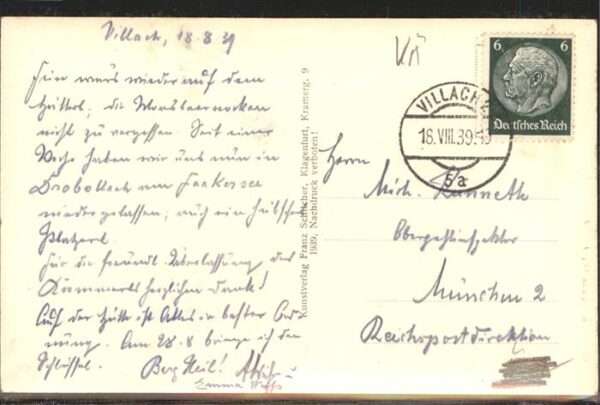 Villach, 18.8.39
Fein war's wieder auf dem
Hüttel, die
nicht zu vergessen. Seit einer
Woche haben wir uns nun in
Drobollach am Faakersee
niedergelassen, auch ein hübsches
Platzerl.
Für die freundl. Überlassung des
Kämmerls herzlichen Dank!
Auf der Hütte ist Alles in bester Ord-
nung. Am 28.8 bringe ich den
Schlüssel. Berg Heil!
Emma
Kunstverlag Franz Schilcher, Klagenfurt, Kramerg. 9
1939, Nachdruck verboten!
6 6
Deutsches Reich
VILLACH 2
18.VIII.39
5a
Herrn
Mich. Kunneth
Oberpostinspektor
München 2
Reichspostdirektion